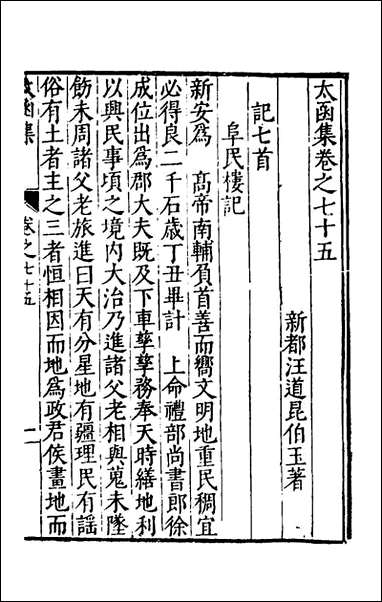 太函集卷之七十五
新都汪道昆伯玉著
記七首
阜民樓記
新安爲　高帝南輔頁首善而嚮文明地重民稠宜
必得良二千石歲丁丑畢計　上命禮部尚書郎徐
成位出爲郡大夫既及下車孳孳務奉天時繕地利
以興民事頃之境内大治乃進諸父老相與蒐未墜
飭未周諸父老旅進曰天有分星地有疆理民有謡
俗有土者主之三者恒相因而地爲政君侯畫地而
太函集
卷之七十五
一